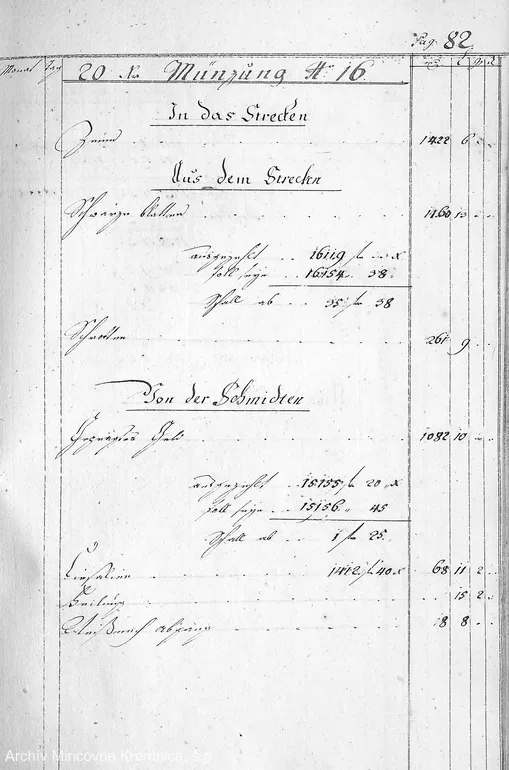 Pag. 82
Monat Tag 20 No Münzung No 16 M L q d
In das Strecken
Zeine 1422 6
Aus dem Strecken
Schwarze blatten 1160 13
ausgezehlt 16119 f x
soll seyn 16154 38
fhall ab 35 f 38
Schrotten 261 9
Von der Schmidten
Gepregtes Geld 1082 10
ausgezehlt 15155 f 20 x
soll seyn 15156 45
fhall ab 1 f 25
1412 f 40 x 68 11 2
Feilung 15 2
Weißmach abgang 8 8
Archív Mincovne Kremnica, š.p.